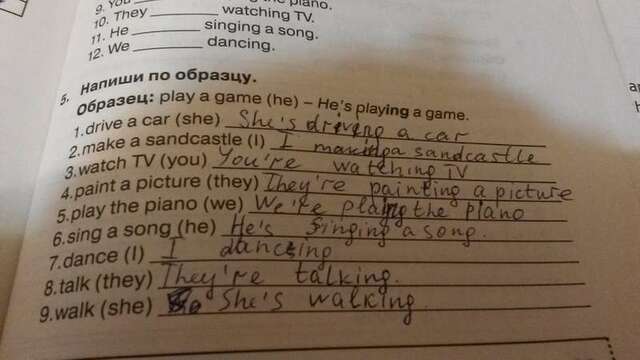 9. You the piano.
10. They ________ watching TV.
11. He ________ singing a song.
12. We ________ dancing.
5. Напиши по образцу.
Образец: play a game (he) – He's playing a game.
1.drive a car (she) She's driving a car
2.make a sandcastle (I) I making a sandcastle
3.watch TV (you) You're watching TV
4.paint a picture (they) They're painting a picture
5.play the piano (we) We're playing the piano
6.sing a song (he) He's singing a song.
7.dance (I) I dancing
8.talk (they) They're talking.
9.walk (she) She's walking.